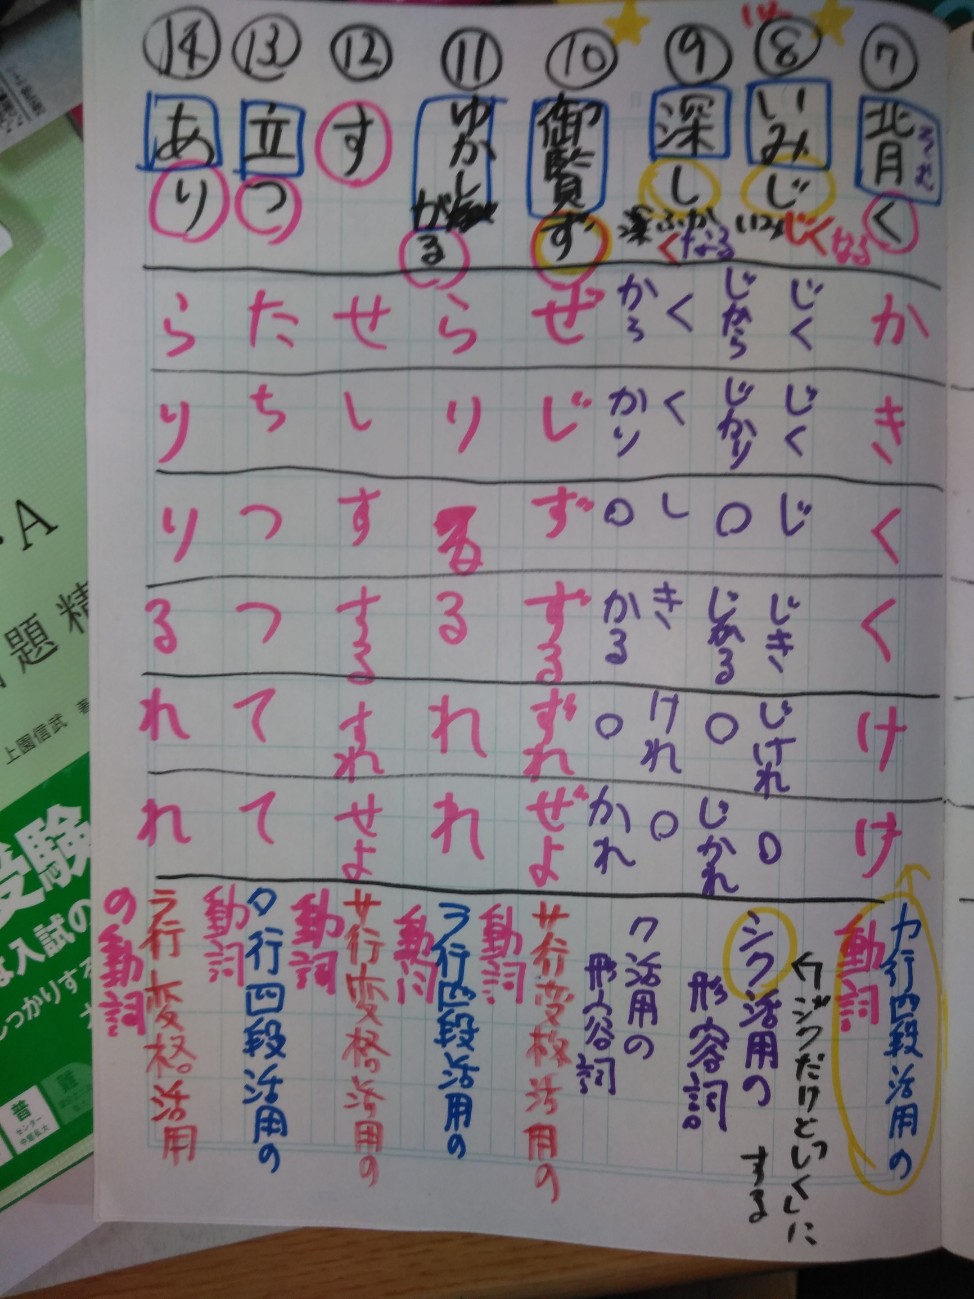 ⑦
背く
そむ
か
き
く
く
け
け
カ行四段活用の
動詞
⑧
いみじ
いみじくなる
じく
じく
じ
じき
じけれ
○
じから
じかり
○
じかる
○
じかれ
←ジクだけどシクに
する
シク活用の
形容詞
⑨
深し
深ふかくなる
く
く
し
き
けれ
○
から
かり
○
かる
○
かれ
ク活用の
形容詞
⑩
御覧ず
ぜ
じ
ず
ずる
ずれ
ぜよ
サ行変格活用の
動詞
⑪
ゆかしがる
ら
り
る
る
れ
れ
ラ行四段活用の
動詞
⑫
す
せ
し
す
する
すれ
せよ
サ行変格活用の
動詞
⑬
立つ
た
ち
つ
つ
て
て
タ行四段活用の
動詞
⑭
あり
ら
り
り
る
れ
れ
ラ行変格活用
の動詞
・A
題 精
上園信武 著
受験
入試の
しっかりする
普
センター
中堅私大
難